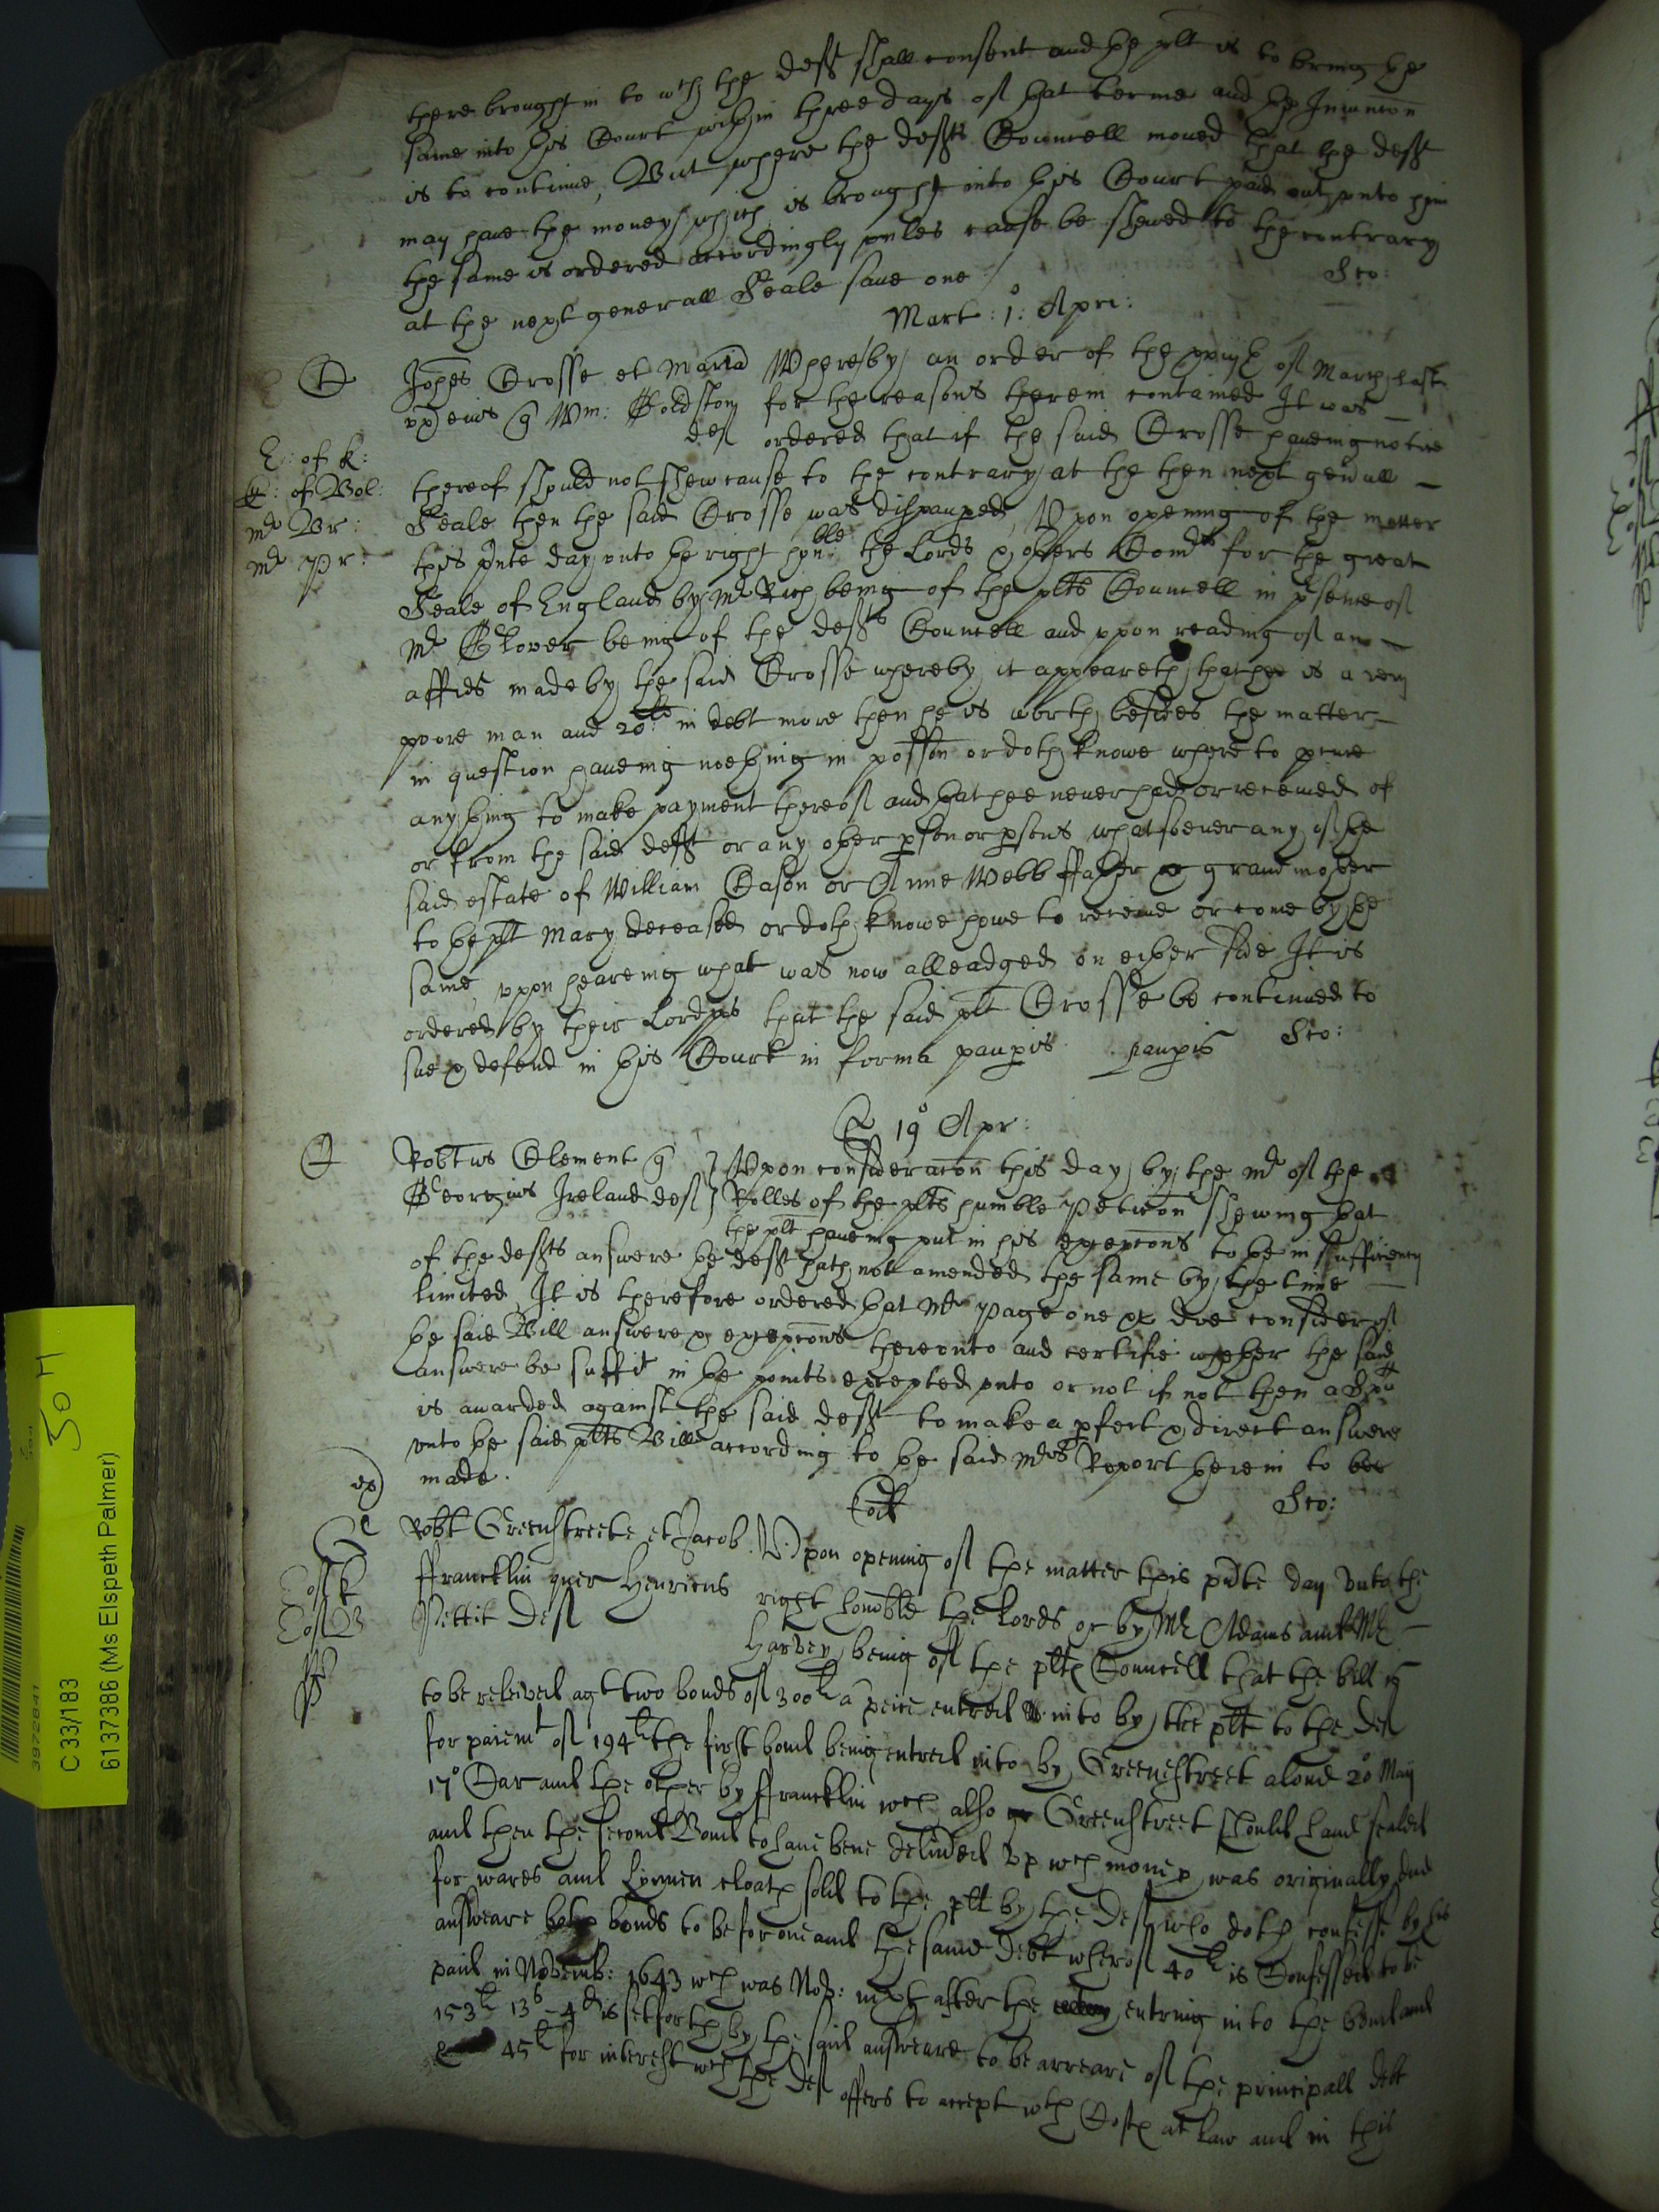 there brought in to wch the deft shall consent and the plt is to bring the
same into this Court within three days of that terme and the Iniunccon
is to continue, But where the defts Councell moued that the deft
may haue the moneys which is brought into this Court paid out vnto him
the same is ordered accordingly vnles cause be shewed to the contrary
at the next generall Seale saue one / Sto:
Mart: 1o: Apri:
Johes Crosse et Maria Whereby an order of the of March last
vx eius q Wm: Goldston for the reasons therein contained It was
def ordered that if the said Crosse haueing notice
E: of K:
E: of Bol:
Mr Br:
Mr Pr:
thereof should not shew cause to the contrary at the then next genall
Seale then the said Crosse was dispaupd, Vpon opening of the matter
this pnte day vnto the right honble the Lords & others Comrs for the great
Seale of England by Mr Rich being of the plts Councell in psence of
Mr Glover being of the defts Councell and vpon reading of an
affid made by the said Crosse whereby it appeareth that hee is a very
poore man and 20ls in debt more then he is worth besides the matter
in question haueing nothing in posson or doth knowe where to haue
any thing to make payment thereof and that hee neuer had or receiued of
or from the said deft or any other pson or psons whatsoeuer any of the
said estate of William Cason or Anne Webb ffather & grandmother
to the plt Mary deceased or doth knowe howe to receiue or come by the
same, vpon heareing what was now alleadged on either side It is
ordered by their Lordps that the said plt Crosse be continued to
sue & defend in this Court in forma paupis paupis Sto:
19o Apr:
Robtus Clement q } Vpon consideracon this day by the Mr of the
Georgius Ireland def } Rolles of the plts humble Peticon shewing that
the plt haueing put in his excepcons to the insufficiency
of the defts answere the deft hath not amended the same by the time
limited It is therefore ordered that Mr Page one &c doe consider of
the said Bill answere & excepcons therevnto and certifie whether the said
answere be suffit in the points excepted vnto or not if not then a Spa
is awarded against the said deft to make a pfect & direct answere
vnto the said plts Bill according to the said Mrs Report therein to bee
made. Sto:
ex)
Eod
E of K
E of B
P
Robt Greenstreete et Jacob Vpon opening of the matter this pnte day vnto the
ffrancklin quer Henricus right honoble the Lords &c by Mr Adams and Mr
Pettit Def Harvey being of the plts Councell that the bill is
to be releived agt two bonds of 300l a peice entred into by the plt to the def
for paiemt of 194l the first bond being entred into by Greenestreet alone 20 May
17o Car and the other by ffrancklin wch also Greenstreet should haue sealed
and then the second Bond to haue bene deliuded vp wch money was originally due
for wares and Lynnen cloath sold to the plt by the Def who doth confesse by his
answeare both bonds to be for one and the same debt wherof 40l is Confessed to be
paid in Novemb: 1643 wch was Nov: next after the entring into the bond and
153l 13s 4d is set forth by the said answeare to be arreare of the principall debt
& 45l for interest wch the Def offers to accept wth Costs at Law and in this
C 33/183
6137386 (Ms Elspeth Palmer)
3972841